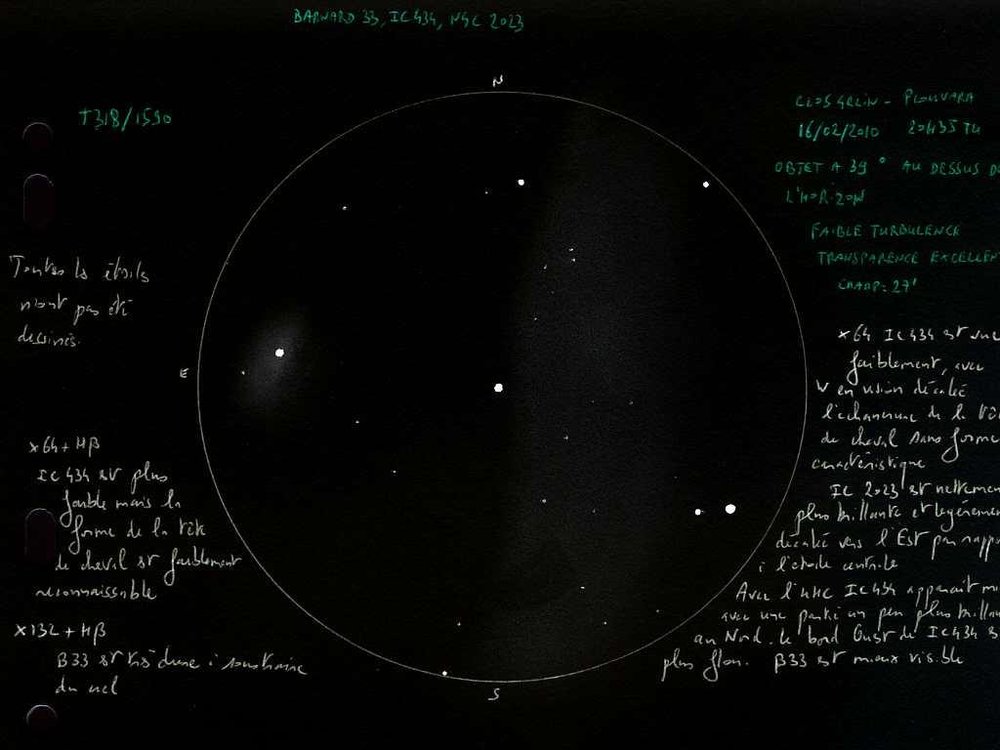 BARNARD 33, IC 434, NGC 2023
T318/1590
CLOS GELIN - PLOUVARA
16/02/2010 20H35 TU
OBJET A 39° AU DESSUS DE
L'HORIZON
FAIBLE TURBULENCE
TRANSPARENCE EXCELLEN
CHAMP: 27'
N
E
S
Toutes les étoiles
n'ont pas été
dessinés.
x64 + Hβ
IC 434 est plus
faible mais la
forme de la tête
de cheval est faiblement
reconnaissable
x132 + Hβ
B33 est très dure à
du ciel
x64 IC434 est vue
faiblement, avec
en vision décalée
l'échancrure de la tê
de cheval sans forme
caractéristique
IC 2023 est nettemen
plus brillante et légèremen
décalée vers l'Est par rapp
à l'étoile centrale
Avec l'UHC IC434 apparait mi
avec une partie un peu plus brillan
au Nord. le bord Ouest de IC434 es
plus flou. B33 est mieux visible